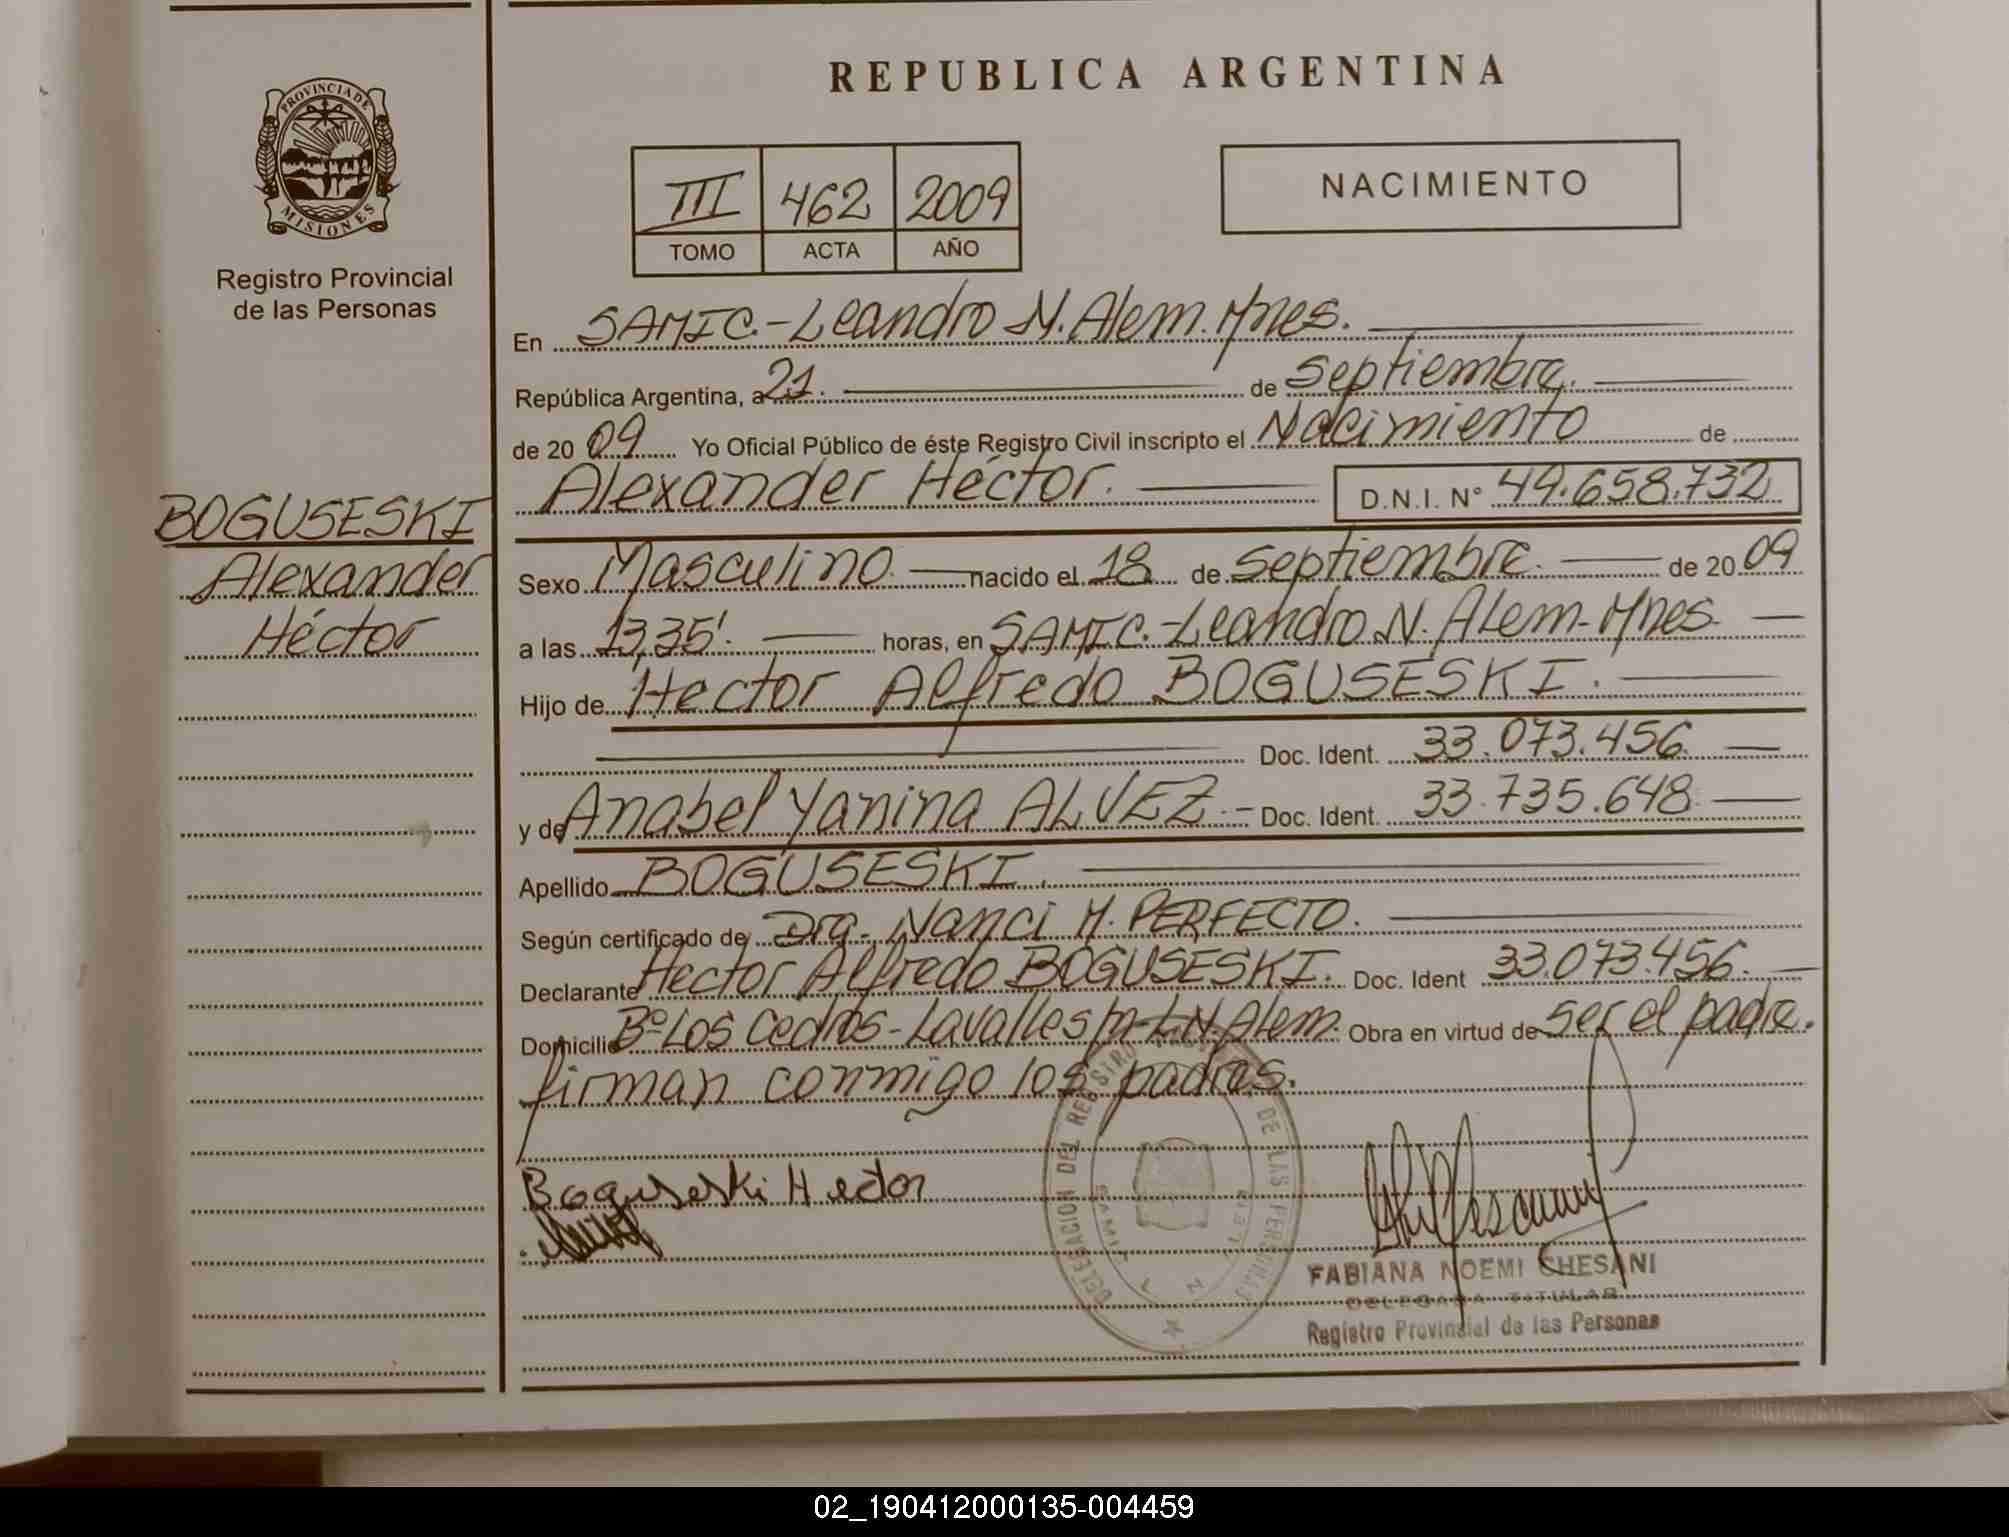 REPUBLICA ARGENTINA
PROVINCIA DE
MISIONES
Registro Provincial
de las Personas
III 462 2009
TOMO ACTA AÑO
NACIMIENTO
En SAMIC.-Leandro N. Alem. Mnes.
República Argentina, a 21. de Septiembre.
de 20 09 Yo Oficial Público de éste Registro Civil inscripto el Nacimiento de
Alexander Héctor. D.N.I. N° 49.658.732
BOGUSESKI
Alexander
Héctor
Sexo Masculino. nacido el 18 de Septiembre. de 20 09
a las 13,35'. horas, en SAMIC.-Leandro N. Alem-Mnes.
Hijo de Hector Alfredo BOGUSESKI.
Doc. Ident. 33.073.456.
y de Anabel Yanina ALVEZ.- Doc. Ident. 33.735.648
Apellido BOGUSESKI.
Según certificado de Dra. Nanci M. PERFECTO.
Declarante Hector Alfredo BOGUSESKI. Doc. Ident 33.073.456.
Domicilio B° Los Cedros-Lavalle s/n-L.N.Alem. Obra en virtud de ser el padre.
firman conmigo los padres.
Boguseski Hector
DELEGACION DEL REGISTRO DE LAS PERSONAS
FABIANA NOEMI CHESANI
DELEGADA TITULAR
Registro Provincial de las Personas
02_190412000135-004459